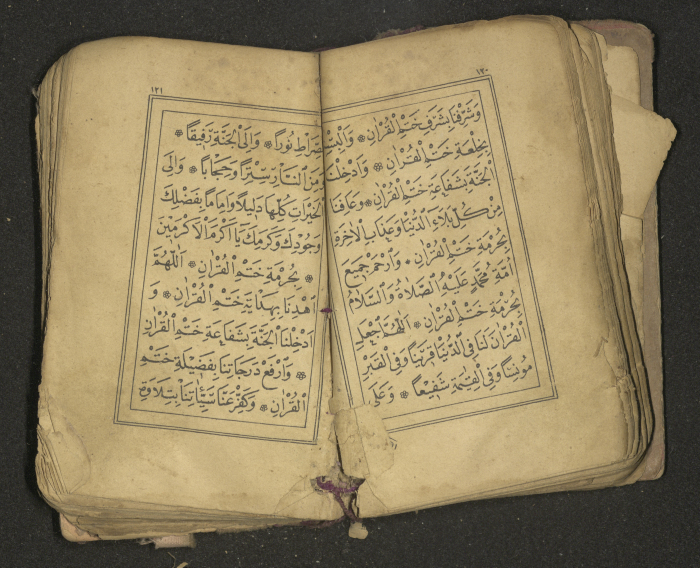 ١٢٠
وَشَرِّفْنَا بِشَرَفِ خَتْمِ الْقُرْاٰنِ ۞ وَاَلْبِسْنَا
بِخِلْعَةِ خَتْمِ الْقُرْاٰنِ ۞ وَاَدْخِلْنَا
الْجَنَّةَ بِشَفَاعَةِ خَتْمِ الْقُرْاٰنِ ۞ وَعَافِنَا
مِنْ كُلِّ بَلَاءِ الدُّنْيَا وَعَذَابِ الْاٰخِرَةِ
بِحُرْمَةِ خَتْمِ الْقُرْاٰنِ ۞ وَارْحَمْ جَمِيعَ
اُمَّةِ مُحَمَّدٍ عَلَيْهِ الصَّلَاةُ وَالسَّلَامُ
بِحُرْمَةِ خَتْمِ الْقُرْاٰنِ ۞ اَللّٰهُمَّ اجْعَلِ
الْقُرْاٰنَ لَنَا فِى الدُّنْيَا قَرِينًا وَفِى الْقَبْرِ
مُونِسًا وَفِى الْقِيٰمَةِ شَفِيعًا ۞ وَعَلَى
١٢١
الصِّرَاطِ نُورًا ۞ وَاِلَى الْجَنَّةِ رَفِيقًا ۞
وَمِنَ النَّارِ سِتْرًا وَحِجَابًا ۞ وَاِلَى
الْخَيْرَاتِ كُلِّهَا دَلِيلًا وَاِمَامًا بِفَضْلِكَ
وَجُودِكَ وَكَرَمِكَ يَا اَكْرَمَ الْاَكْرَمِينَ
۞ بِحُرْمَةِ خَتْمِ الْقُرْاٰنِ ۞ اَللّٰهُمَّ
اهْدِنَا بِهِدَايَةِ خَتْمِ الْقُرْاٰنِ ۞ وَ
اَدْخِلْنَا الْجَنَّةَ بِشَفَاعَةِ خَتْمِ الْقُرْاٰنِ
۞ وَارْفَعْ دَرَجَاتِنَا بِفَضِيلَةِ خَتْمِ
الْقُرْاٰنِ ۞ وَكَفِّرْ عَنَّا سَيِّئَاتِنَا بِتِلَاوَةِ